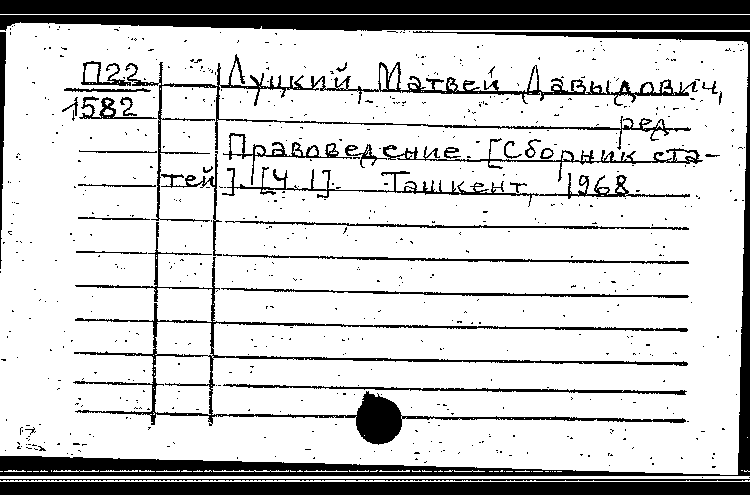 П22
1582
Луцкий, Матвей Давыдович,
ред.
Правоведение. [Сборник ста-
тей]. [Ч. I]. Ташкент, 1968.